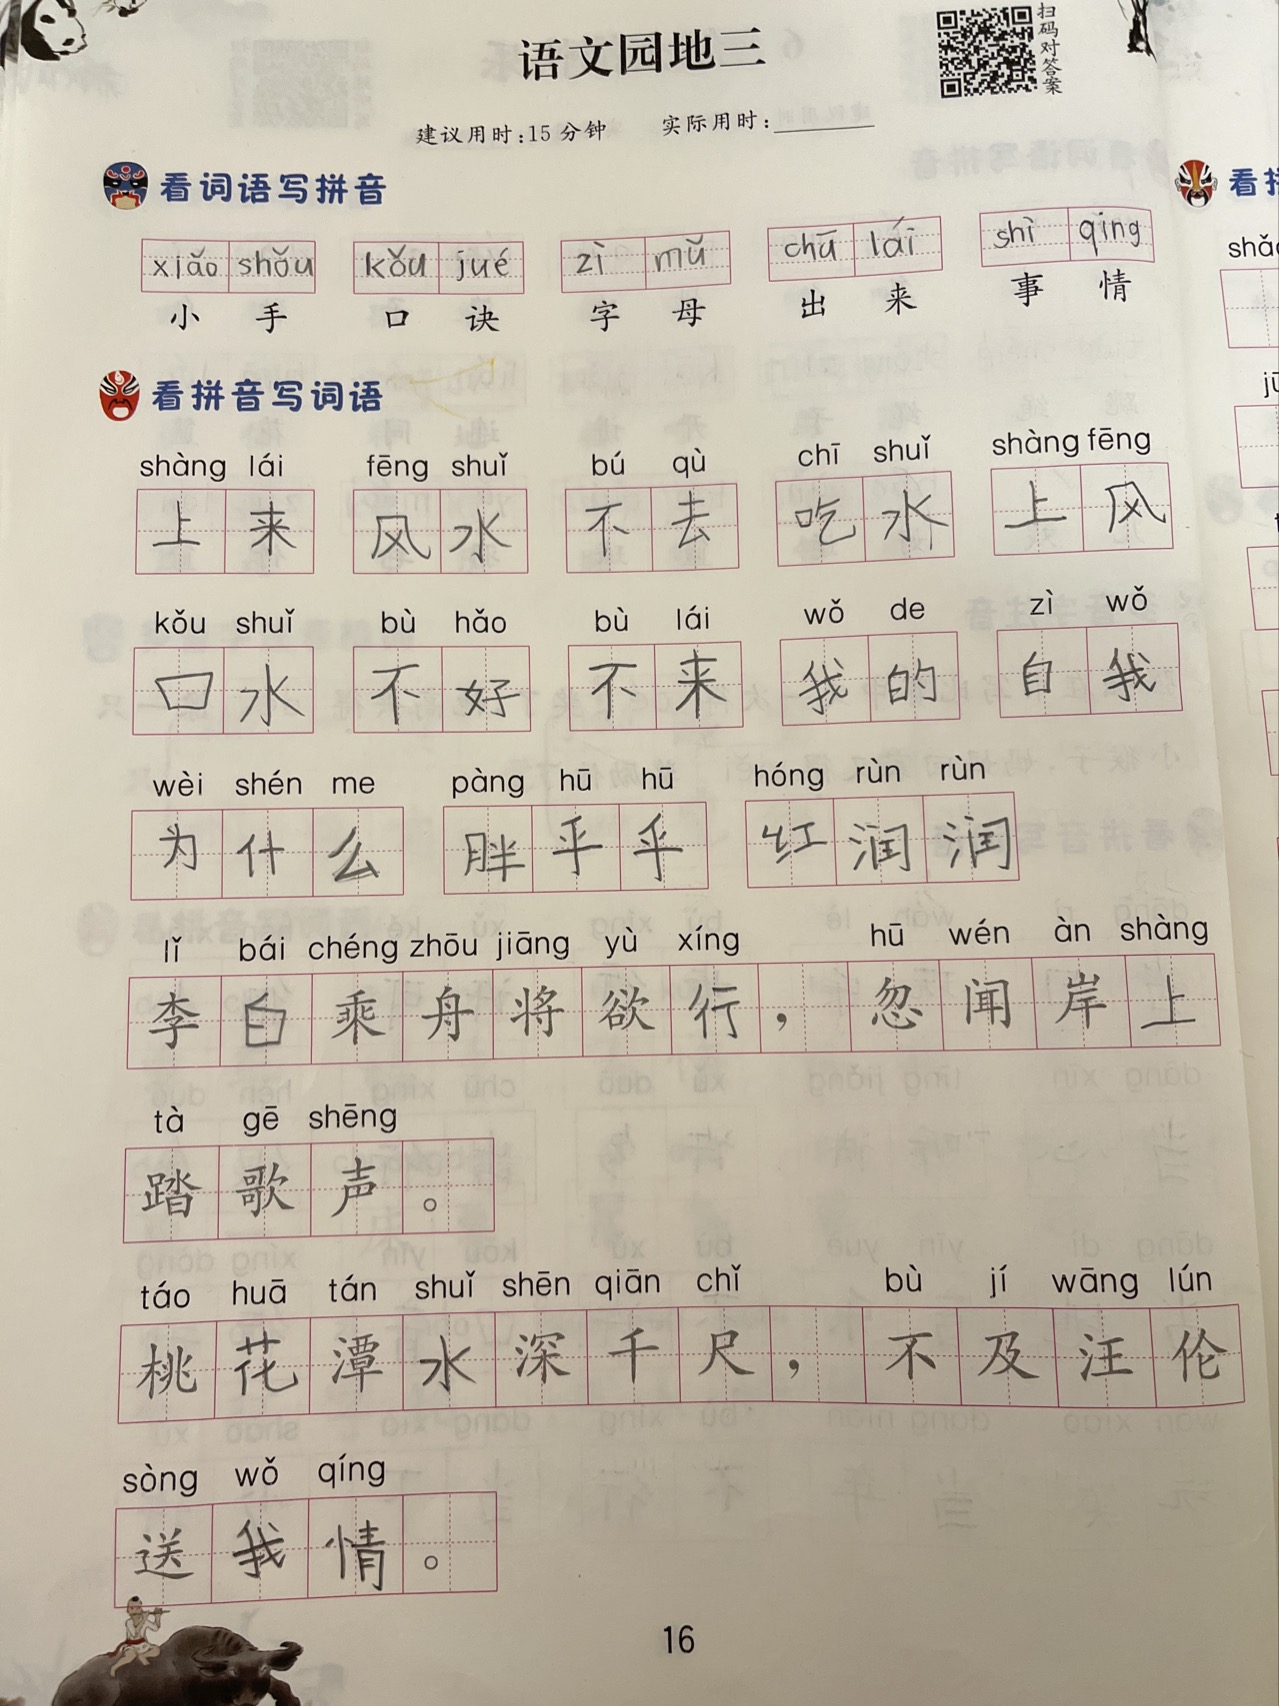 语文园地三
扫码对答案
建议用时:15分钟 实际用时:
看词语写拼音
xiǎo shǒu kǒu jué zì mǔ chū lái shì qing
小 手 口 诀 字 母 出 来 事 情
看拼音写词语
shàng lái fēng shuǐ bú qù chī shuǐ shàng fēng
上来 风水 不去 吃水 上风
kǒu shuǐ bù hǎo bù lái wǒ de zì wǒ
口水 不好 不来 我的 自我
wèi shén me pàng hū hū hóng rùn rùn
为什么 胖乎乎 红润润
lǐ bái chéng zhōu jiāng yù xíng hū wén àn shàng
李白乘舟将欲行，忽闻岸上
tà gē shēng
踏歌声。
táo huā tán shuǐ shēn qiān chǐ bù jí wāng lún
桃花潭水深千尺，不及汪伦
sòng wǒ qíng
送我情。
16
看拼
shǎ